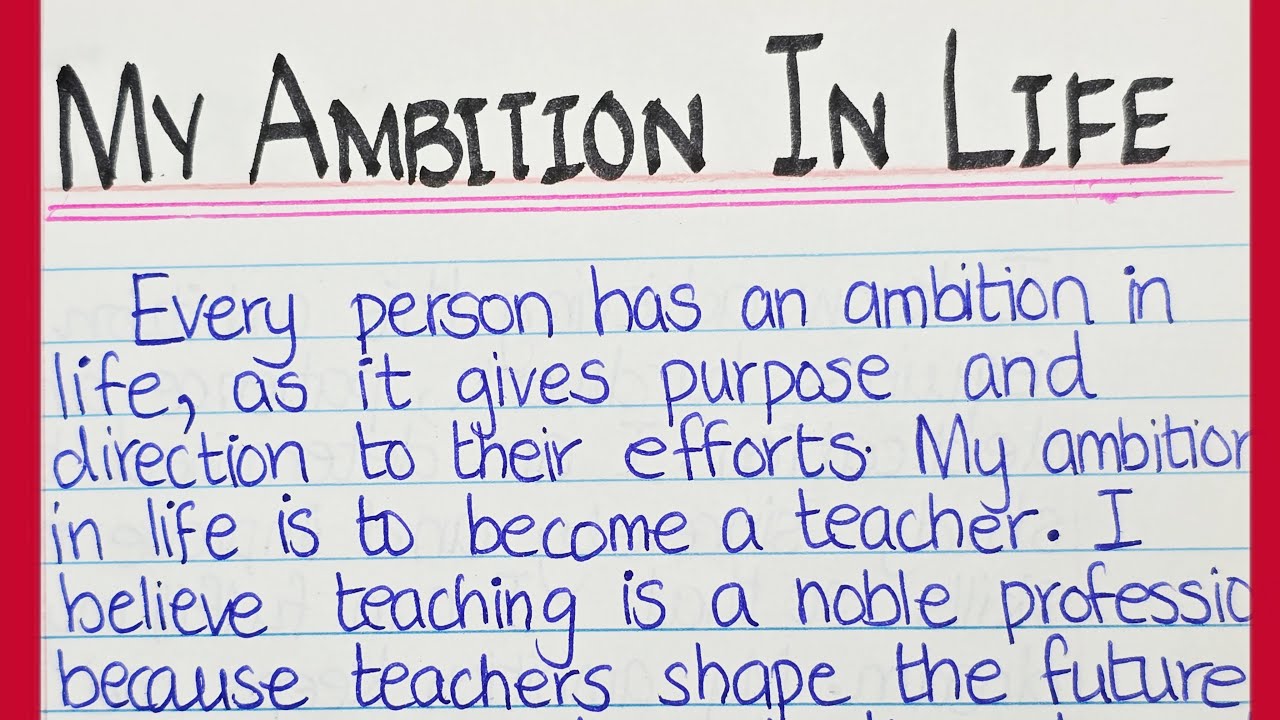 My Ambition In Life
Every person has an ambition in
life, as it gives purpose and
direction to their efforts. My ambition
in life is to become a teacher. I
believe teaching is a noble professio
because teachers shape the future